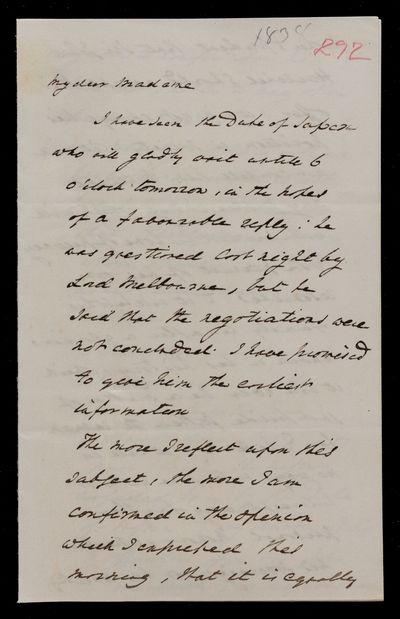 1838
292
My dear Madame
I have seen the Duke of Sussex
who will gladly wait untill 6
o'clock tomorrow, in the hopes
of a favourable reply: he
was questioned last night by
Lord Melbourne, but he
said that the negotiations were
not concluded. I have promised
to give him the earliest
information
The more I reflect upon this
subject, the more I am
confirmed in the opinion
which I expressed this
morning, that it is equally